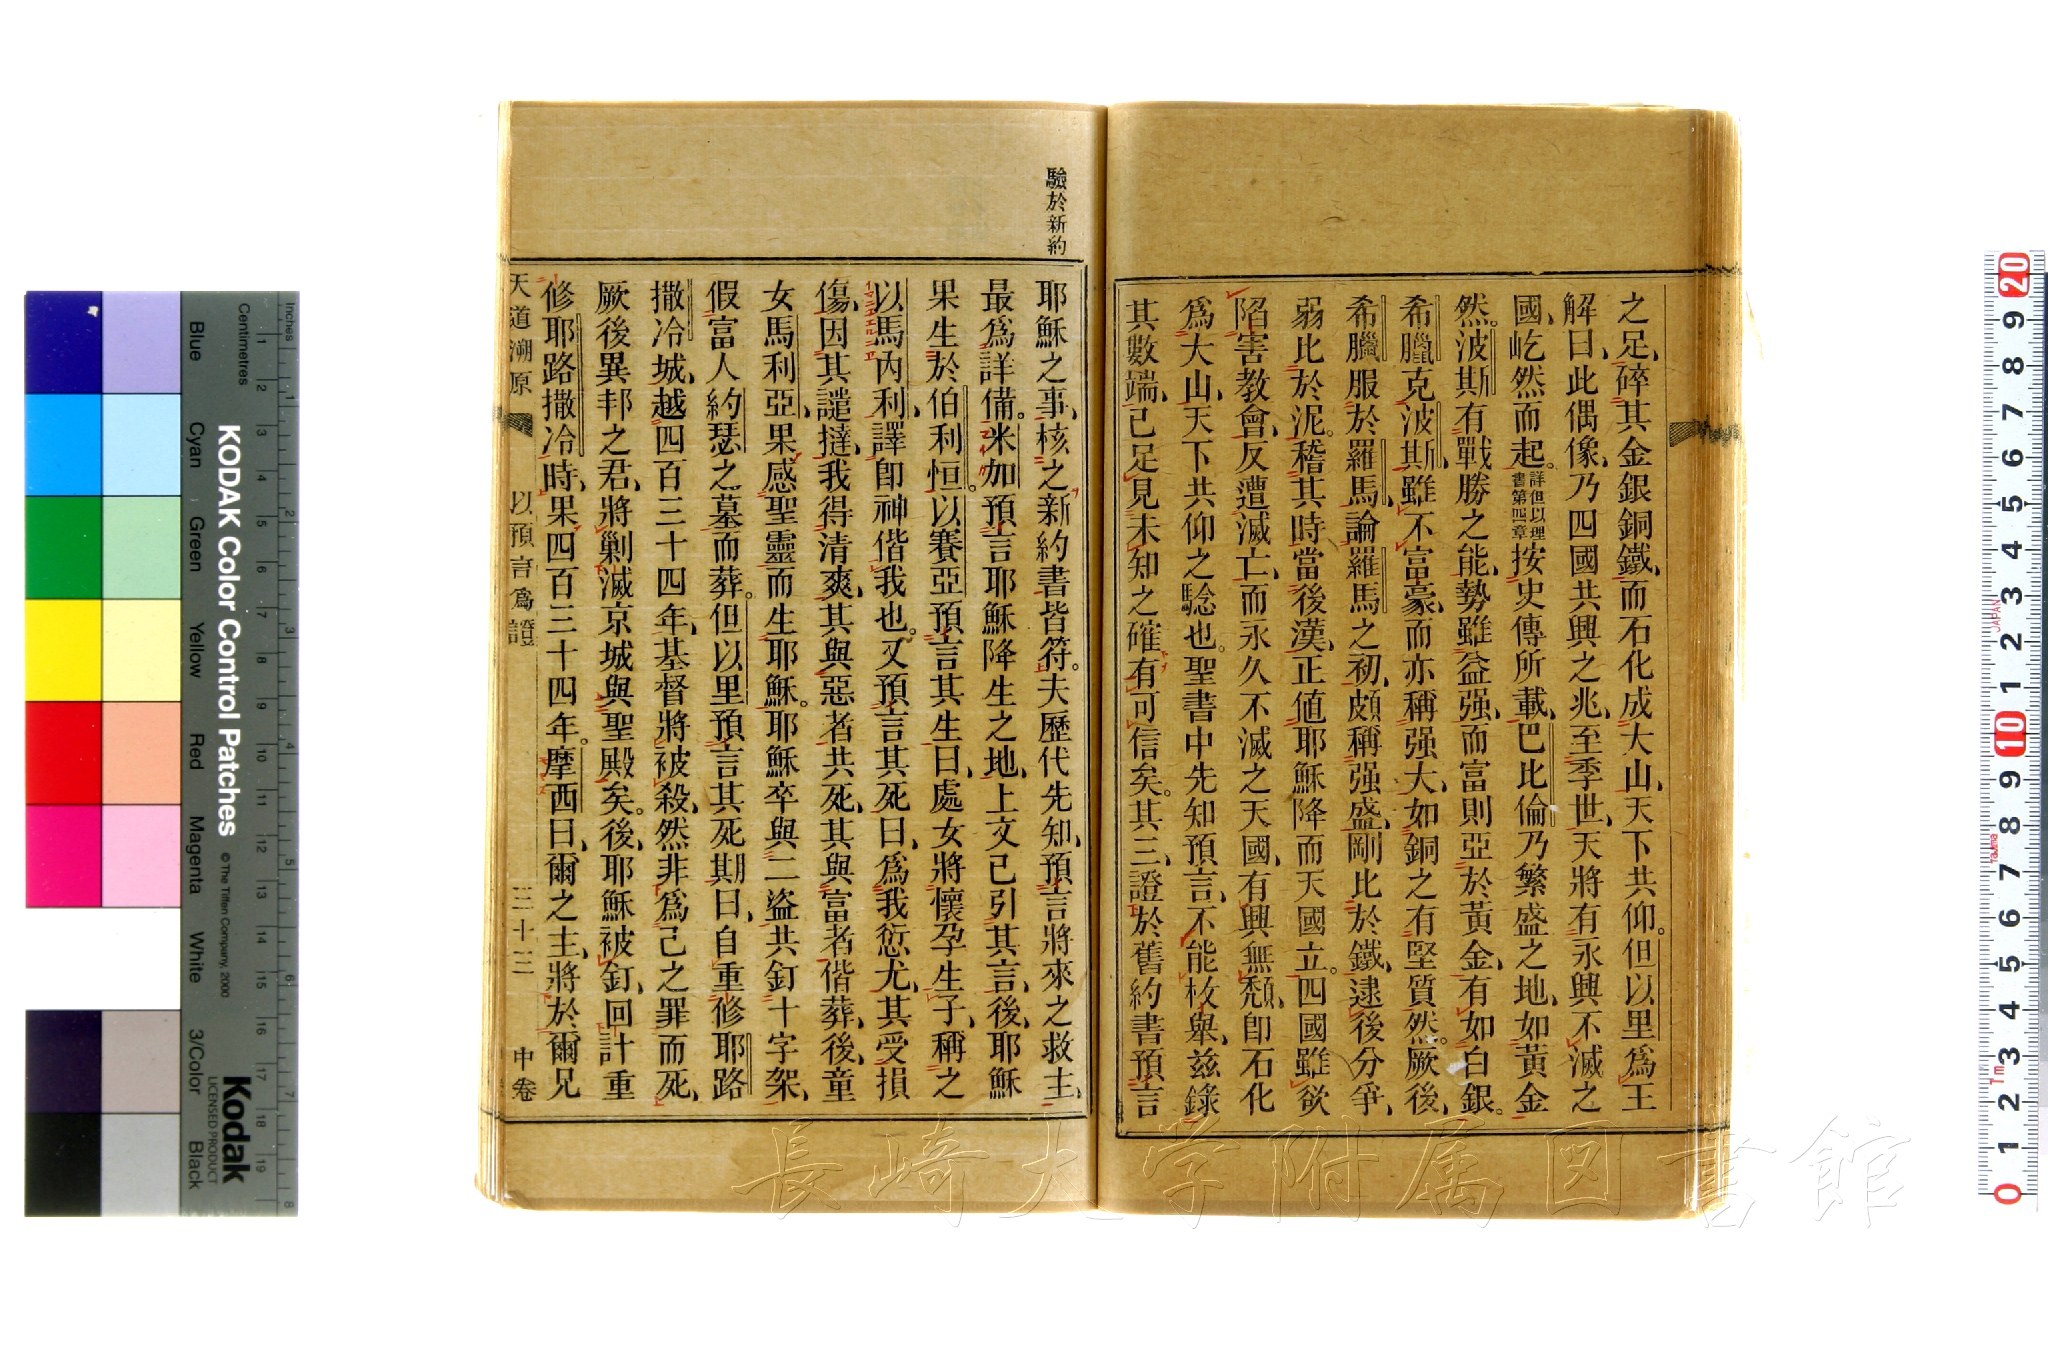 之足、碎其金銀銅鐵、而石化成大山、天下共仰。但以里爲王
解曰、此偶像、乃四國共興之兆、至季世、天將有永興不滅之
國、屹然而起。詳但以理書第四章按史傳所載、巴比倫乃繁盛之地、如黃金
然。波斯有戰勝之能、勢雖益强、而富則亞於黃金、有如白銀。
希臘克波斯、雖不富豪、而亦稱强大、如銅之有堅質然。厥後、
希臘服於羅馬、論羅馬之初、頗稱强盛、剛比於鐵、逮後分爭、
弱比於泥。稽其時當後漢、正値耶穌降而天國立。四國雖欲
陷害教會、反遭滅亡、而永久不滅之天國、有興無頹、卽石化
爲大山、天下共仰之騐也。聖書中先知預言、不能枚舉、兹錄
其數端、已足見未知之確有可信矣。其三、證於舊約書預言
驗於新約
耶穌之事、核之新約書皆符。夫歷代先知、預言將來之救主、
最爲詳備。米加預言耶穌降生之地、上文已引其言、後、耶穌
果生於伯利恒、以賽亞預言其生日、處女將懷孕生子、稱之
以馬內利、譯卽神偕我也。又預言其死曰、爲我愆尤、其受損
傷、因其譴撻、我得淸爽、其與惡者共死、其與富者偕葬、後、童
女馬利亞、果感聖靈而生耶穌。耶穌卒與二盜共釘十字架、
假富人約瑟之墓而葬。但以里預言其死期曰、自重修耶路
撒冷城、越四百三十四年、基督將被殺、然非爲己之罪而死、
厥後異邦之君、將剿滅京城與聖殿矣。後、耶穌被釘、回計重
修耶路撒冷時、果四百三十四年。摩西曰、爾之主、將於爾兄
天道溯原 以預言爲證 三十三 中卷
KODAK Color Control Patches
© The Tiffen Company, 2000
Kodak
LICENSED PRODUCT
Inches
Centimetres
Blue
Cyan
Green
Yellow
Red
Magenta
White
3/Color
Black
長崎大学附属図書館
JAPAN